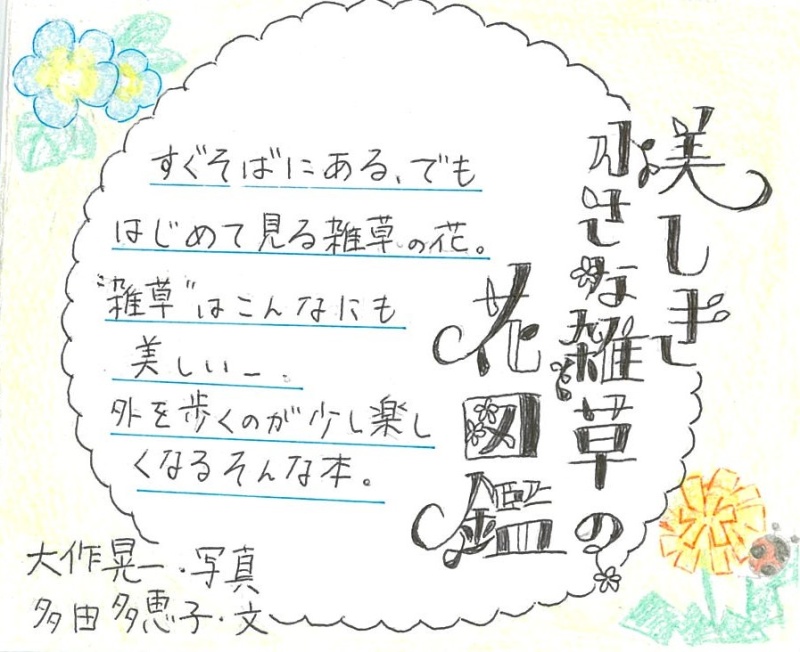 美しき
小さな雑草の
花図鑑
すぐそばにある、でも
はじめて見る雑草の花。
"雑草"はこんなにも
美しい―。
外を歩くのが少し楽し
くなるそんな本。
大作晃一・写真
多田多恵子・文